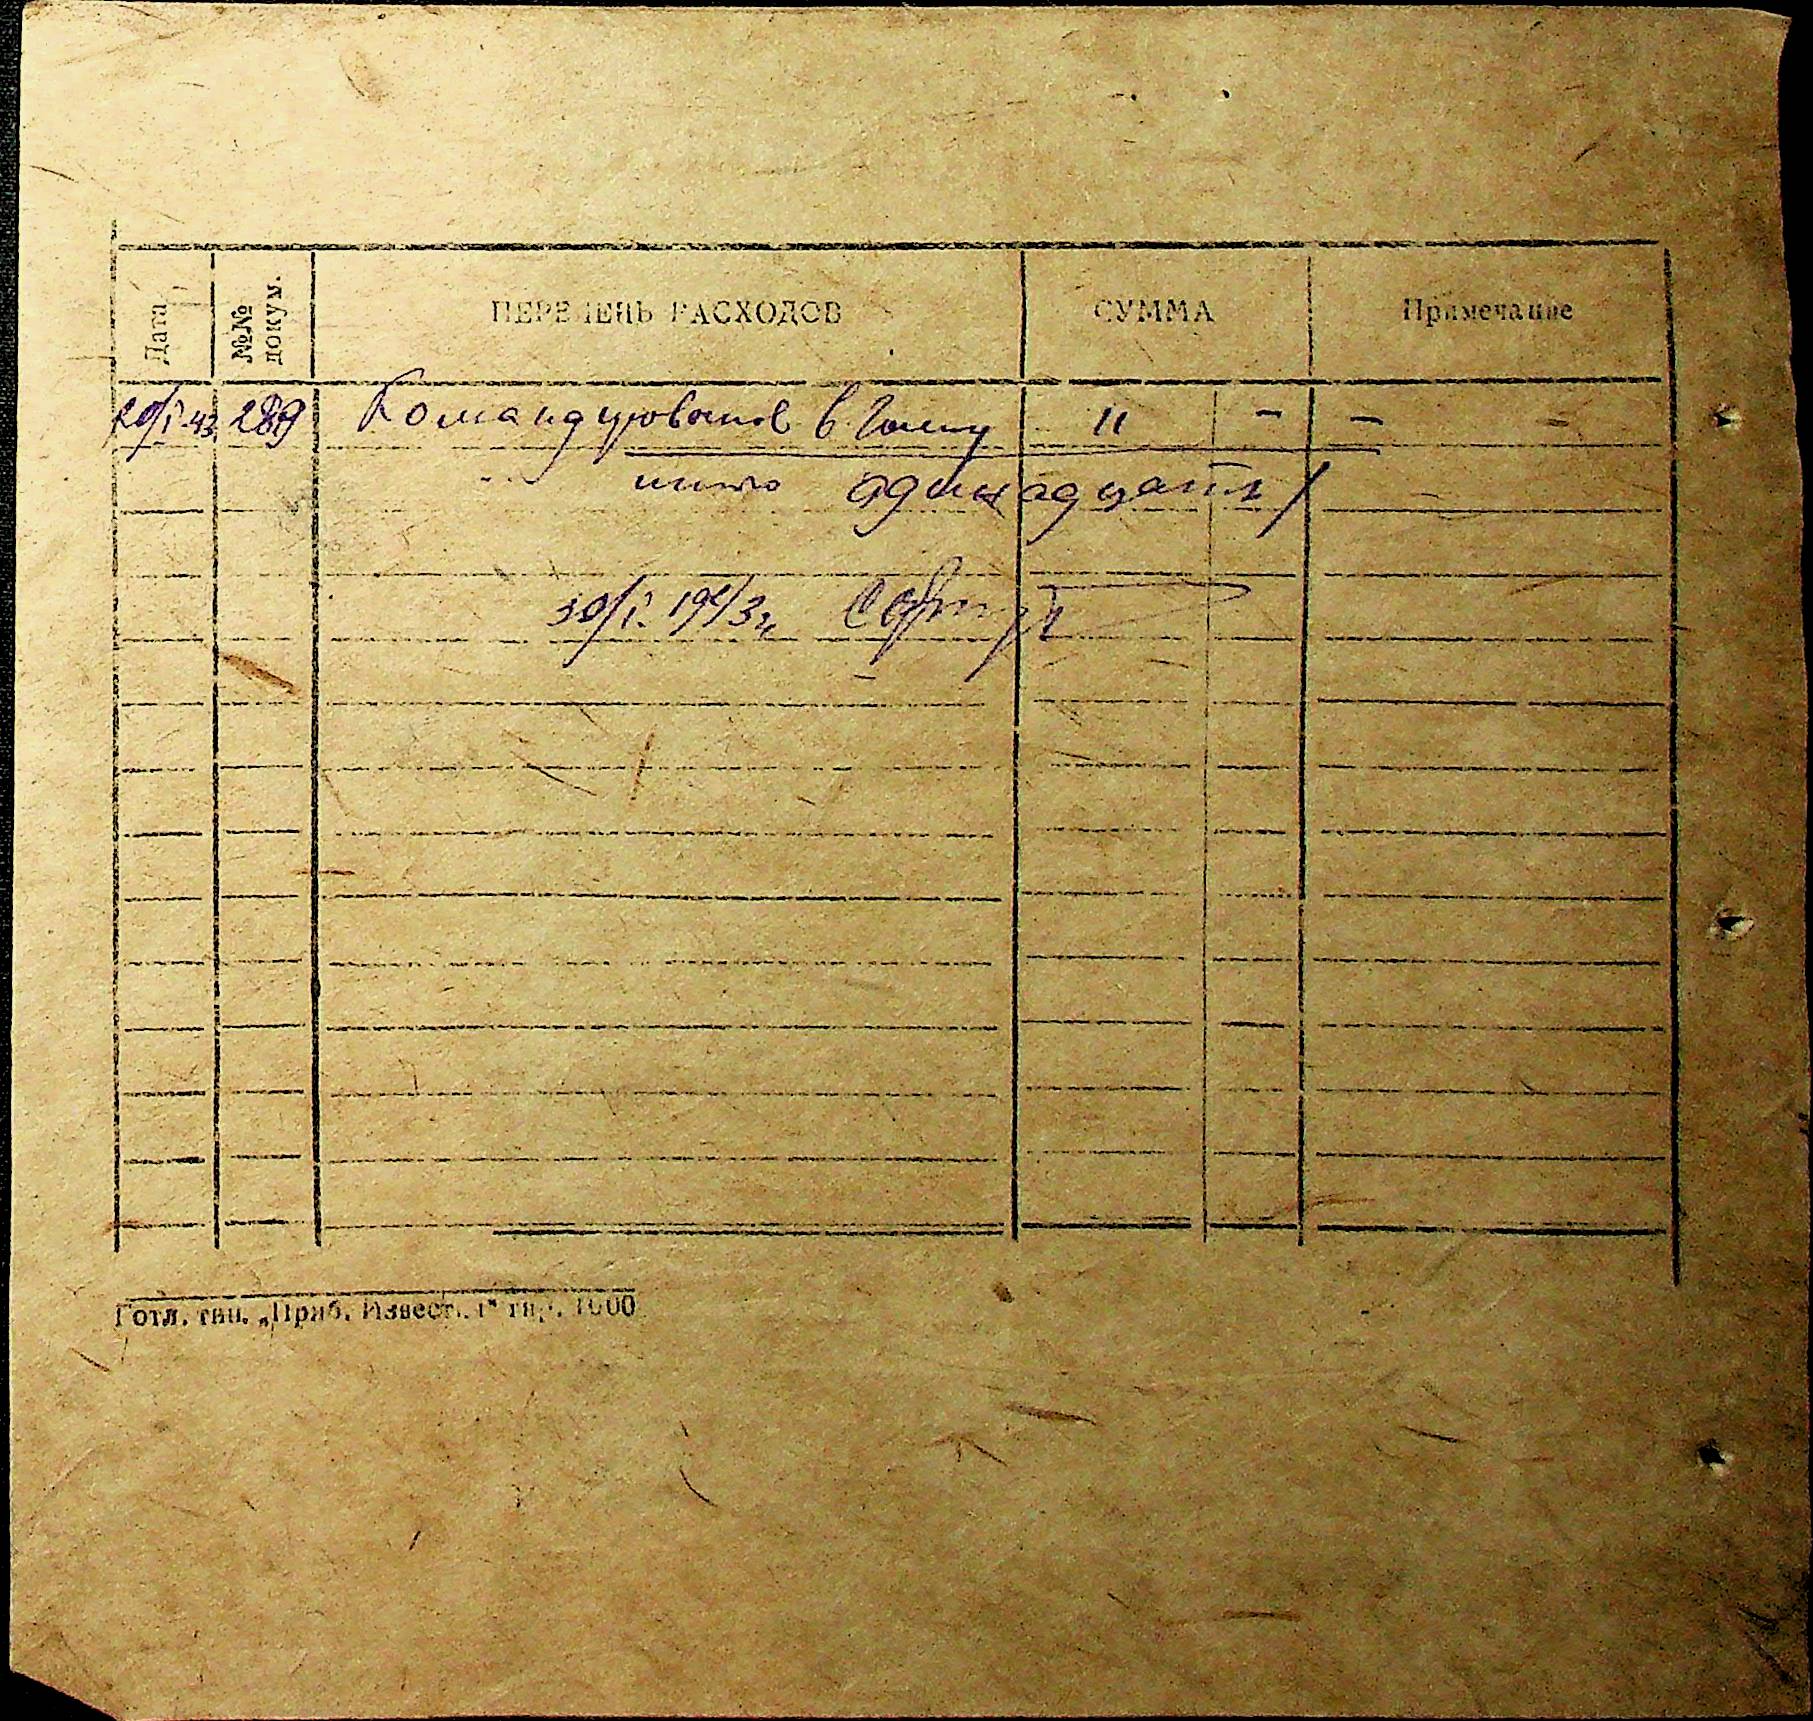 Дата №№ докум. ПЕРЕЧЕНЬ РАСХОДОВ СУММА Примечание
20/I-43 289 Командировочные в 11 - -
итого одинадцать
30/I. 1943г.
Готл. тип. „Приб. Извест." тир. 1000